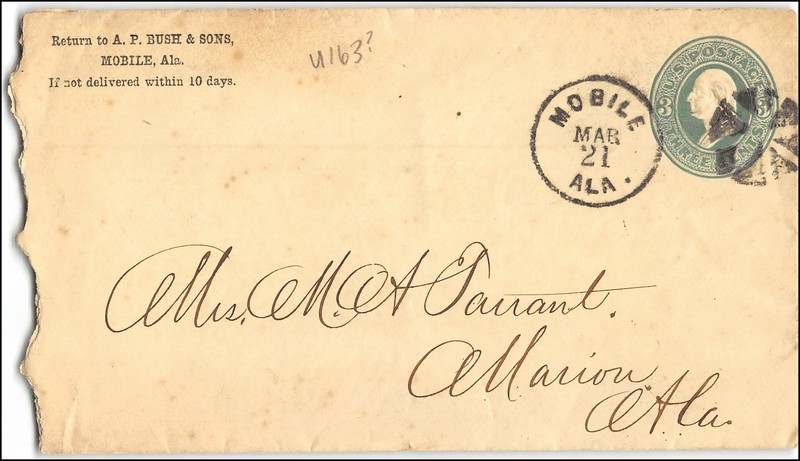 Return to A. P. BUSH & SONS,
MOBILE, Ala.
If not delivered within 10 days.
U163?
MOBILE
MAR
21
ALA.
U.S. POSTAGE
3 3
THREE CENTS
Mrs. M. A Tarrant.
Marion
Ala.